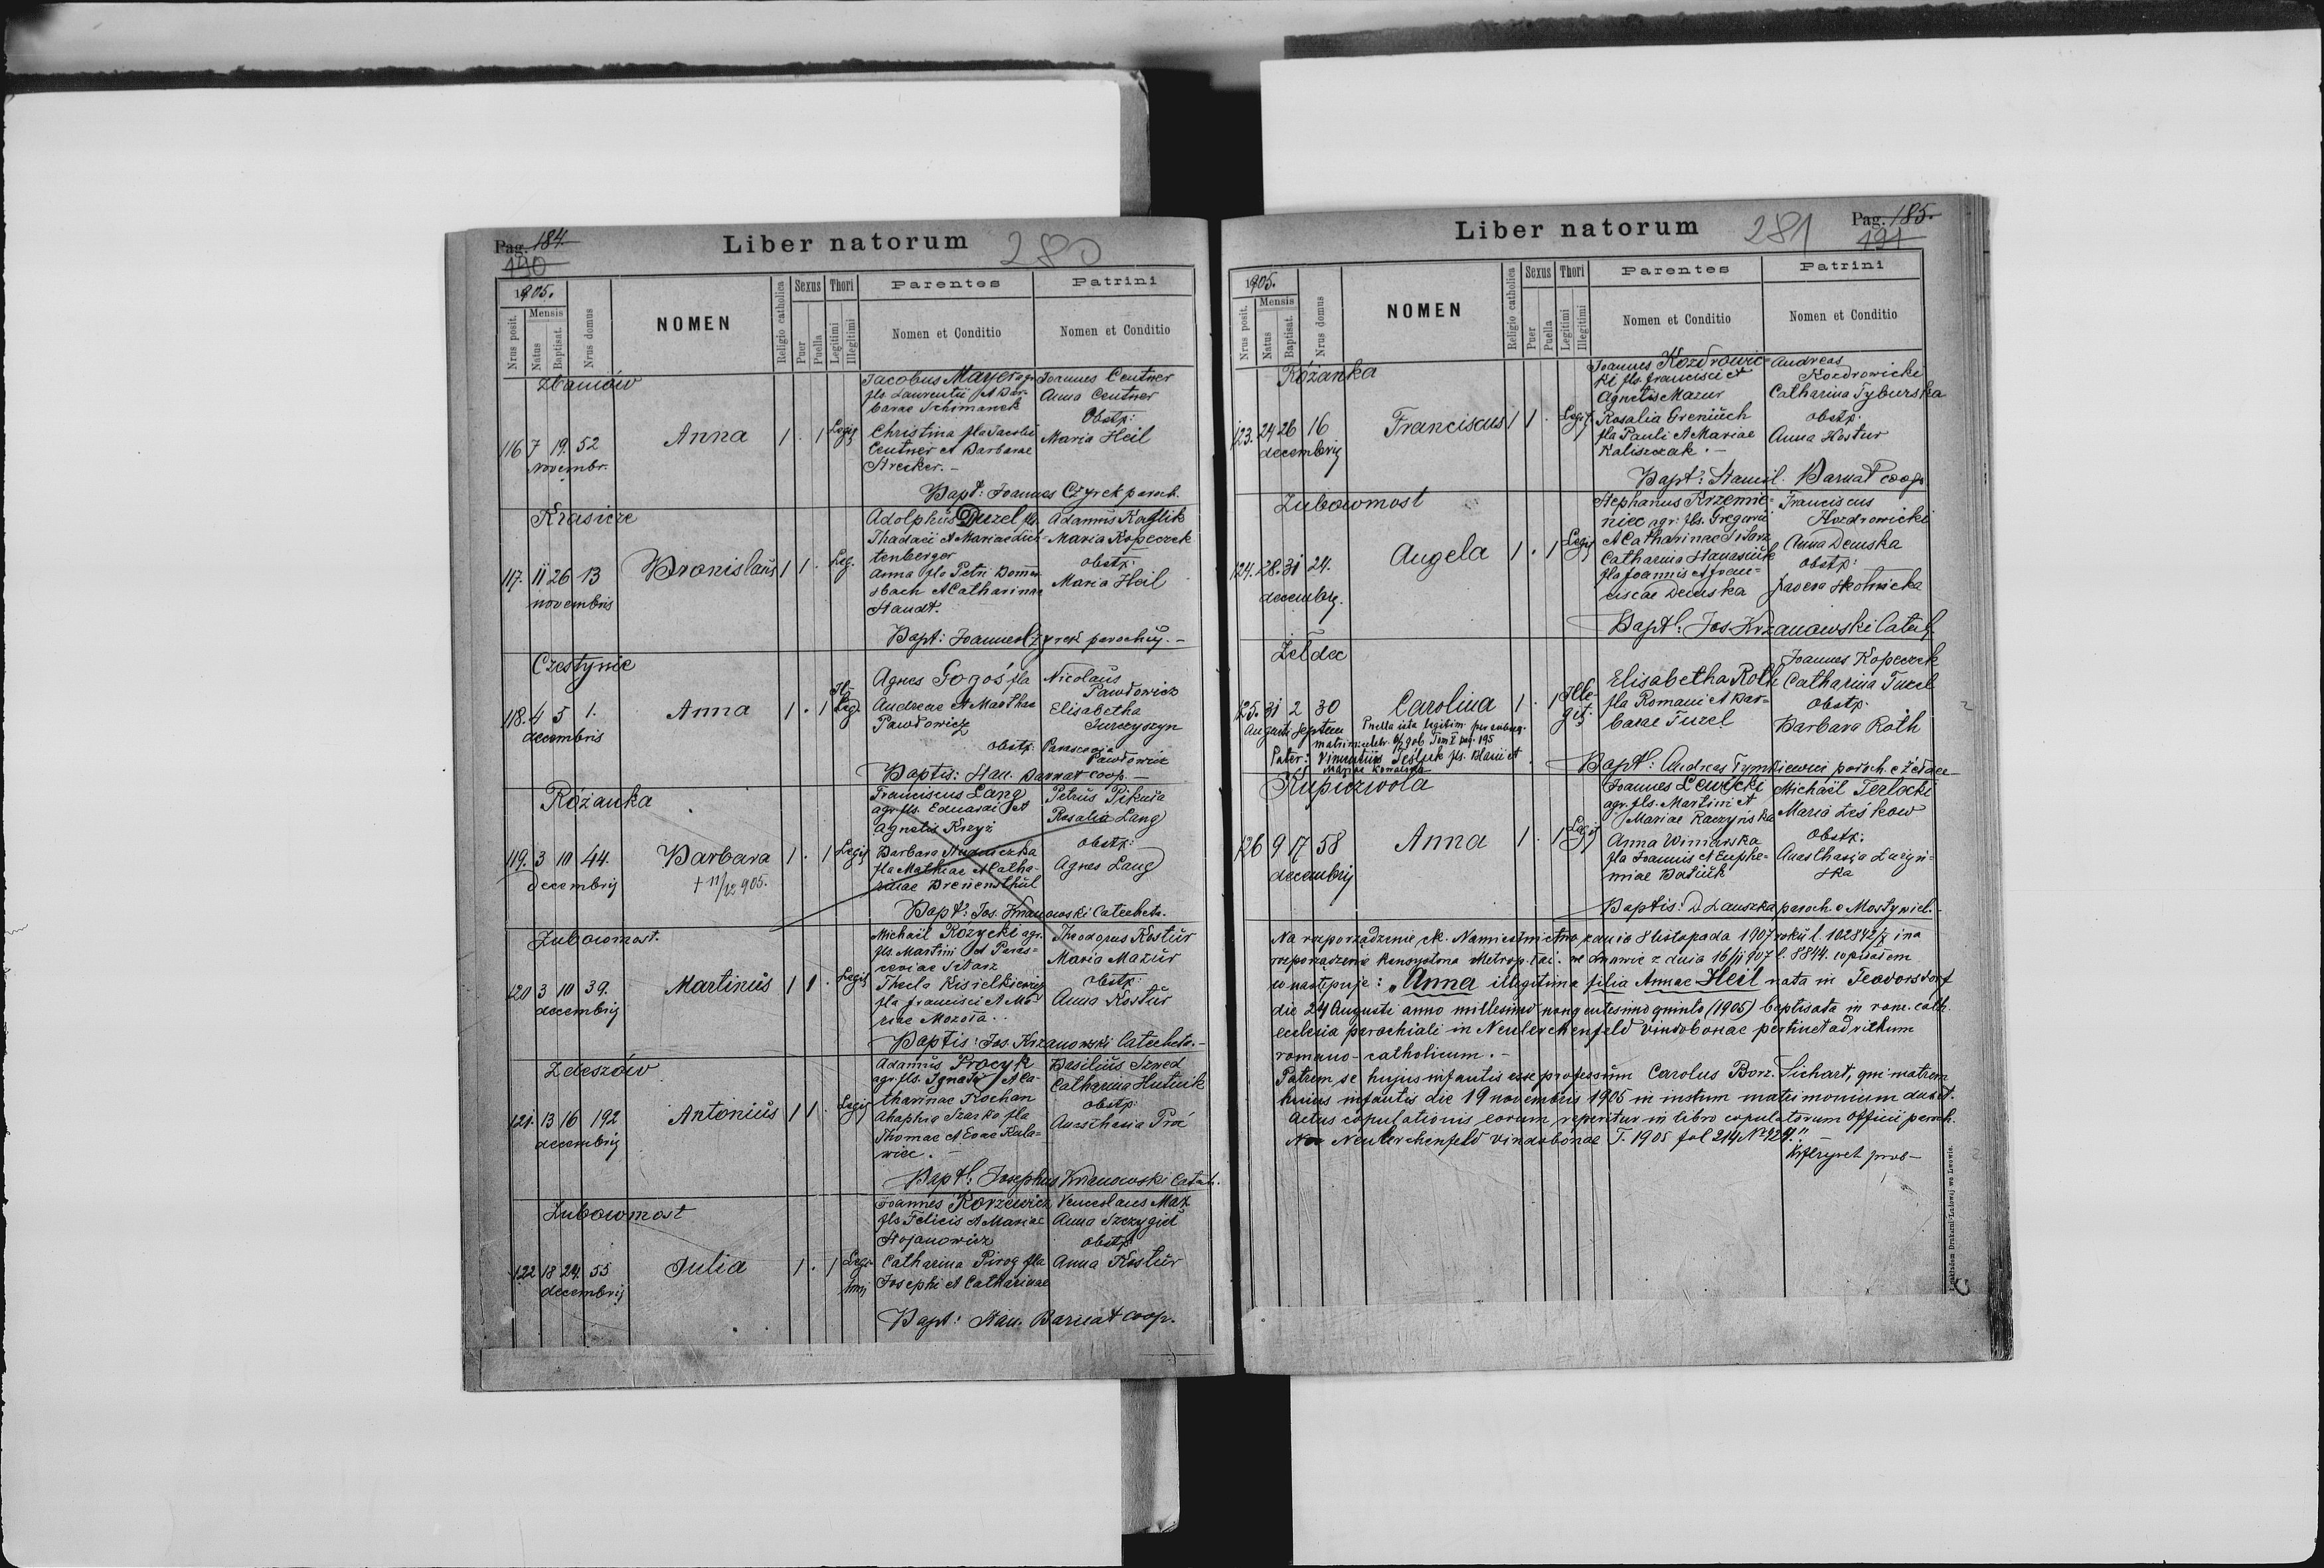 Pag. 184
190
Liber natorum
280
1905.
Nrus posit.
Mensis
Natus
Baptisat.
Nrus domus
NOMEN
Religio catholica
Sexus
Puer
Puella
Thori
Legitimi
Illegitimi
Parentes
Nomen et Conditio
Patrini
Nomen et Conditio
Zbaniów
116 7 19. 52
Novembr.
Anna
1 . 1 Legit
Jacobus Mayer agr.
fls Laurentii et Bar-
barae Schimanek
Christina fla Jacobi
Centner et Barbarae
Strecker. -
Joannes Centner
Anna Centner
Obstp:
Maria Heil
Bapt: Joannes Czyrek paroch.
Krasicze
117. 11 26 13
novembris
Bronislaus
1 1 . Leg.
Adolphus Duzel fls.
Thadaei et Mariae Lich-
tenberger
Anna fla Petri Domm
sbach et Catharinae
Staudt.
Adamus Kozlik
Maria Kopeczek
obstp:
Maria Heil
Bapt: Joannes Czyrek parochus. -
Czestynie
118. 4 5 1.
decembris
Anna
1 . 1 Ille-
leg
Agnes Gogoś fla
Andreae et Marthae
Pawłowicz
Nicolaus
Pawłowicz
Elisabetha
Jurczyszyn
obstp: Parascevia
Pawłowicz
Baptis: Stan. Barnat coop. -
Rózanka
119. 3 10 44.
decembrij
Barbara
+ 11/12 905.
1 . 1 Legit
Franciscus Lang
agr. fls. Eduardi et
Agnetis Kreyz
Barbara
fla Mathiae et Catha-
rinae
Petrus Pikuła
Rosalia Lang
obstp:
Agnes Lang
Bapt: Jos. Krzanowski Catecheta.
Zubowmost.
120 3 10 39.
decembrij
Martinus
1 1 . Legit
Michaël Rozycki agr.
fls. Martini et Paras-
ceviae Sitarz
Thecla Kisielkiewicz
fla Francisci et Ma-
riae Mozoła..
Theodorus Kostur
Maria Mazur
obstp:
Anna Kostur
Baptis: Jos. Krzanowski Catecheta. -
Zdeszów
121. 13 16 192
decembrij
Antonius
1 1 . Legit
Adamus Procyk
agr. fls. Ignatii et Ca-
tharinae Kochan
Ahaphia Szarko fla
Thomae et Evae Kula-
wiec. -
Basilius Szwed
Catharina Hutnik
obstp:
Anasthasia Proć
Bapt: Josephus Krzanowski Catech.
Zubowmost
122 18 24. 55
decembrij
Julia
1 . 1 Legi-
timi
Joannes Korzewicz
fls Felicis et Mariae
Stojanowicz
Catharina Pirog fla
Josephi et Catharinae
Venceslaus Max
Anna Szczygieł
obstp:
Anna Kostur
Bapt: Stan. Barnat coop.
Liber natorum
281
Pag. 185.
191
1905.
Nrus posit.
Mensis
Natus
Baptisat.
Nrus domus
NOMEN
Religio catholica
Sexus
Puer
Puella
Thori
Legitimi
Illegitimi
Parentes
Nomen et Conditio
Patrini
Nomen et Conditio
Rózanka
123. 24 26 16
decembrij
Franciscus
1 1 . Legit
Joannes Kozdrowic-
ki fls. Francisci et
Agnetis Mazur
Rosalia Greniuch
fla Pauli et Mariae
Kaliszczak. -
Andreas
Kozdrowicki
Catharina Tyburska
obstp:
Anna Kostur
Bapt: Stanisl. Barnat coop.
Zubowmost
124. 28. 31 24.
decembr.
Angela
1 . 1 Legit
Stephanus Krzemie-
niec agr. fls. Gregorii
et Catharinae Sitarz
Catharina Hanasiuk
fla Joannis et Fran-
ciscae Demska
Franciscus
Kozdrowicki
Anna Demska
obstp:
Xavera Skotnicka
Bapt: Jos Krzanowski Catech.
Żełdec
125. 31 2 30
Augusti Septem
Carolina
1 . 1 Ille-
git:
Elisabetha Roth
fla Romani et Bar-
barae Tuzel
Joannes Kopeczek
Catharina Tuzel
obstp.
Barbara Roth
Puella ista legitim. per subseq.
matrim. celebr. 6/2 906 Tom V pag. 195
Pater: Vincentius Teśluk fls. Blasii et
Mariae Kowalska
Bapt: Andreas Tymkiewicz paroch. e Żełdec
Kupiczwola
126 9 17 58
decembrij
Anna
1 . 1 Legit
Joannes Lewicki
agr. fls. Martini et
Mariae Raczyńska
Anna Winiarska
fla Joannis et Euphe-
miae Batiuk
Michaël Terlecki
Maria Leśkow
Obstp:
Anasthasia Luczyń-
ska
Baptis: D Lauszka paroch. e Mosty wiel.
Na rozporządzenie ck. Namiestnictwa z dnia 8 listopada 1907 roku l. 102842/X i na
rozporządzenie Konsystorza Metrop. łać. we Lwowie z dnia 16/11 907 l. 8844. wpisałem
co następuje: "Anna illegitima filia Annae Heil nata in Teodorsdorf
die 24 Augusti anno millesimo nongentesimo quinto (1905) baptisata in rom. cath.
ecclesia parochiali in Neulerchenfeld Vindobonae pertinet ad rithum
romano-catholicum. -
Patrem se hujus infantis esse professum Carolus Borr. Sichart, qui matrem
hujus infantis die 19 novembris 1905 in instum matrimonium duxit.
Actus copulationis eorum reperitur in libro copulatorum Officii paroch.
Neulerchenfeld Vindobonae T. 1905 fol 214 No 424."
Czyrek prob -
Nakładem Drukarni Ludowej we Lwowie.